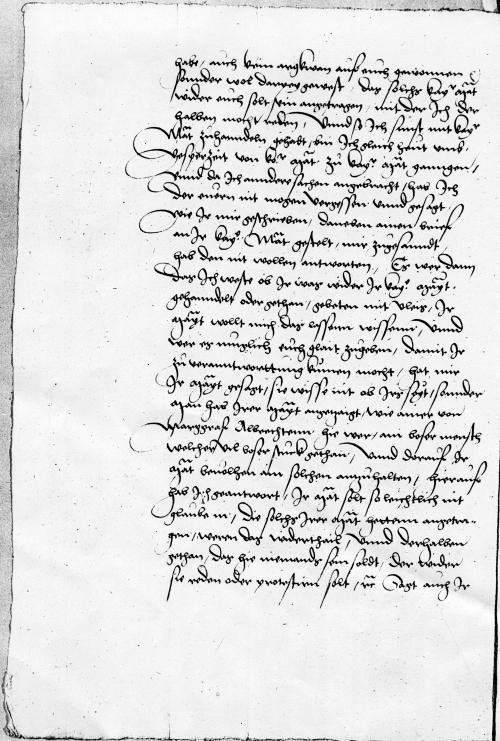 habe, auch kein argkwan auf euch gewonnen
sonder wol darvon gewest, das solchs kayr Mät
wider euch solt sein angetragen, mit der Ich der
halben nichts reden, Unnd so Ich sunst mit kayr
Mät zuhanndeln gehabt, bin Ich gleich heut umb
vesperzeit von kr Mät zu kayr Mät ganngen,
unnd da Ich anndere sachen angebracht, has Ich
der euern nit mogen vergessen unnd gesagt,
wie Ir mir geschrieben, daneben ainen brief
an Ir kayr Mät gestelt, mir zugesanndt,
hab den nit wollen antworten, Es wer dann
das Ich weste ob Ir was wider Ir kayr Mayt
gehanndelt oder gethan, gebeten mit vleis, Ir
Mayt wollt mich das lassenn wissenn, Unnd
wer es muglich euch glait zugeben, damit Ir
zu veranntworttung kumen mocht, hat mir
Ir Mayt gesagt, sie wisse nit ob Irs seyt, sonder
man hab Irer Mayt angezaigt, wie ainer von
Marggraf Albrechtenn hie wer, ain boser mensch
welcher vil boser stuck gethan, Unnd darauf Ir
Mät bevolhen ain solchen anzuhalten, hierauf
hab Ich geantwort, Ir Mät solt so leichtlich nit
glauben, die solchs Irer Mät hettenn angetra-
gen, weren das widertheil, Unnd derhalben
gethan, das hie niemands sein soldt, der wider
sie reden oder protestirn solt, rc Sagt auch Ir